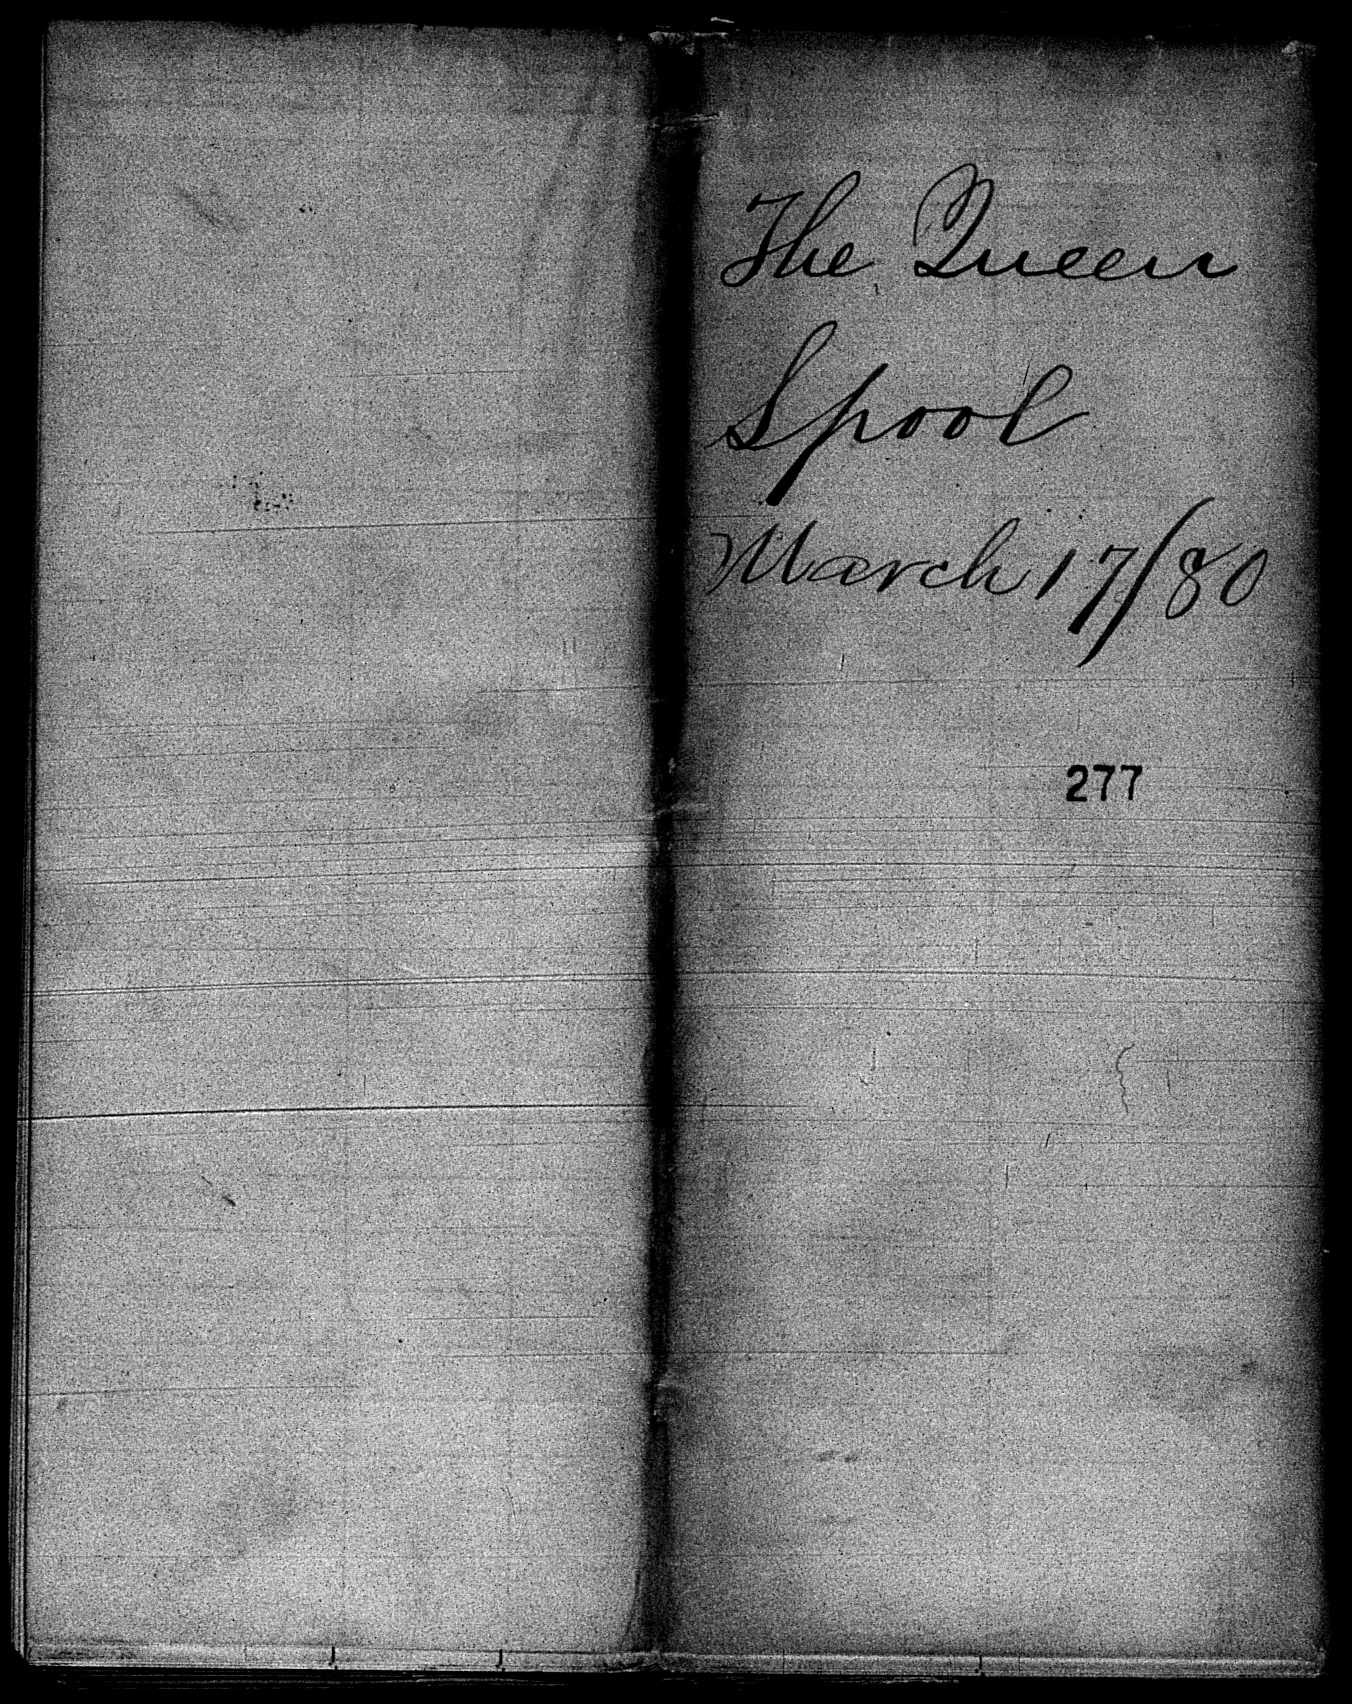 The Queen
Spool
March 17/80
277